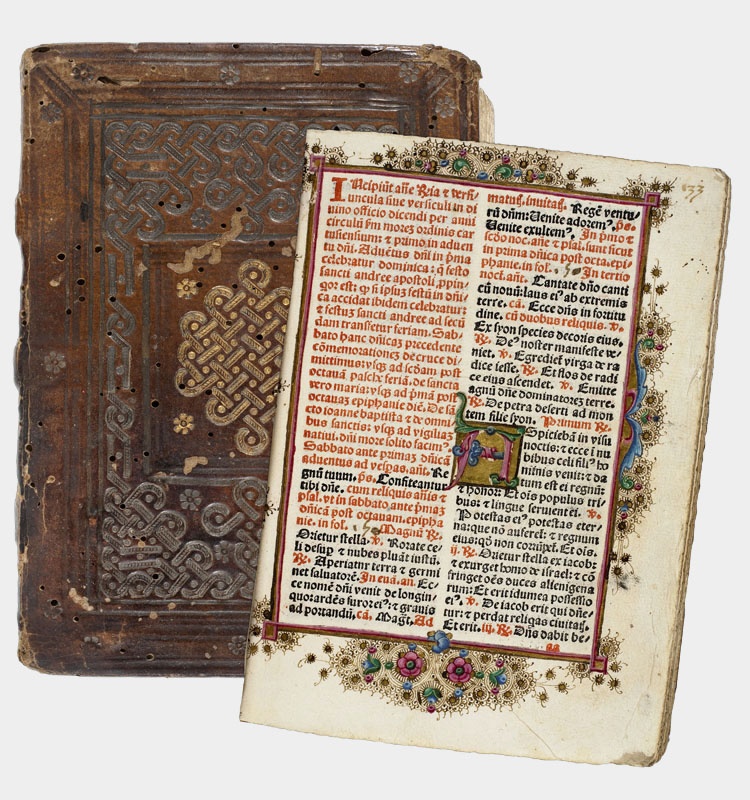 INcipiũt añe Rr̃ia & versi
uncula siue versiculi in di
uino officio dicendi per anni
circulũ s̃m morẽ ordinis car
tusiensium: & primo in aduen
tu dñi. Aduẽtus dñi in p̃ma
celebratur dominica: q̃ festo
sancti andree apostoli ꝓpin
qor est: q̃ si ipsũ festũ in dñi
ca accidat ibidem celebratur:
& festũ sancti andree ad secũ
dam transfetur feriam. Sab
bato hanc dñicã precedente
cõmemorationẽ de cruce di
mittimus: vsq̃ ad sc̃dam post
octauã pasche feriã. de sancta
vero maria: vsq̃ ad p̃mã post
octauas epiphanie diẽ. De sã
cto ioanne baptista & de omni
bus sanctis: vsq̃ ad vigiliaʒ
natiui. dñi more solito facim⁹.
Sabbato ante primaʒ dñicã
aduentus ad vespas. añ. Re
gnũ tuum. ps. Confiteantur
tibi dñe. cum reliquis añis &
psal. vt in sabbato ante p̃maʒ
dñica post octauam. epipha
nie. in fol. Magnũ R̃.
Orietur stella. v. Rorate ce
li desup & nubes pluãt iustũ.
R̃. Aperiatur terra & germi
net saluatorẽ. In euã. añ. Ec
ce nomẽ dñi venit de longin
quo: ardẽs furor ei⁹: & grauis
ad portandũ. cã. Magt. Ad
matuť. inuitať. Regẽ ventu
rũ dñm: Uenite adorem⁹. ps.
Uenite exultem⁹. In pmo &
sc̃do noc. añe & psal. sunt sicut
in prima dñica post octa. epi
phanie. in fol. In tertio
nocť. añ. Cantate dño canti
cũ nouũ: laus ei⁹ ab extremis
terre. cã. Ecce dñs in fortitu
dine. cũ duobus reliquis. v.
Ex syon species decoris eius.
R̃. De⁹ noster manifeste ve
niet. v. Egrediet̃ virga de ra
dice iesse. R̃. Et flos de radi
ce eius ascendet. v. Emitte
agnũ dñe dominatorẽ terre.
R̃. De petra deserti ad mon
tem filie syon. Primum R̃.
ASpiciebã in visu
noctis: & ecce ĩ nu
bibus celi fili⁹ ho
minis venit: & da
tum est ei regnũ:
& honor: Et oĩs populus tri
bus: & lingue seruient ei. v.
Potestas ei⁹ potestas eter
na: que nõ auferet̃: & regnum
eius: qð non corrũpet̃. Et oĩs.
ij. R̃. Orietur stella ex iacob:
& exurget homo de israel: & cõ
fringet oẽs duces alienigena
rum: Et erit idumea possessio
ei⁹. v. De iacob erit qui dñe
tur: & perdat reliq̃as ciuitať.
Et erit. iij. R̃. Dñs dabit be
aa
133